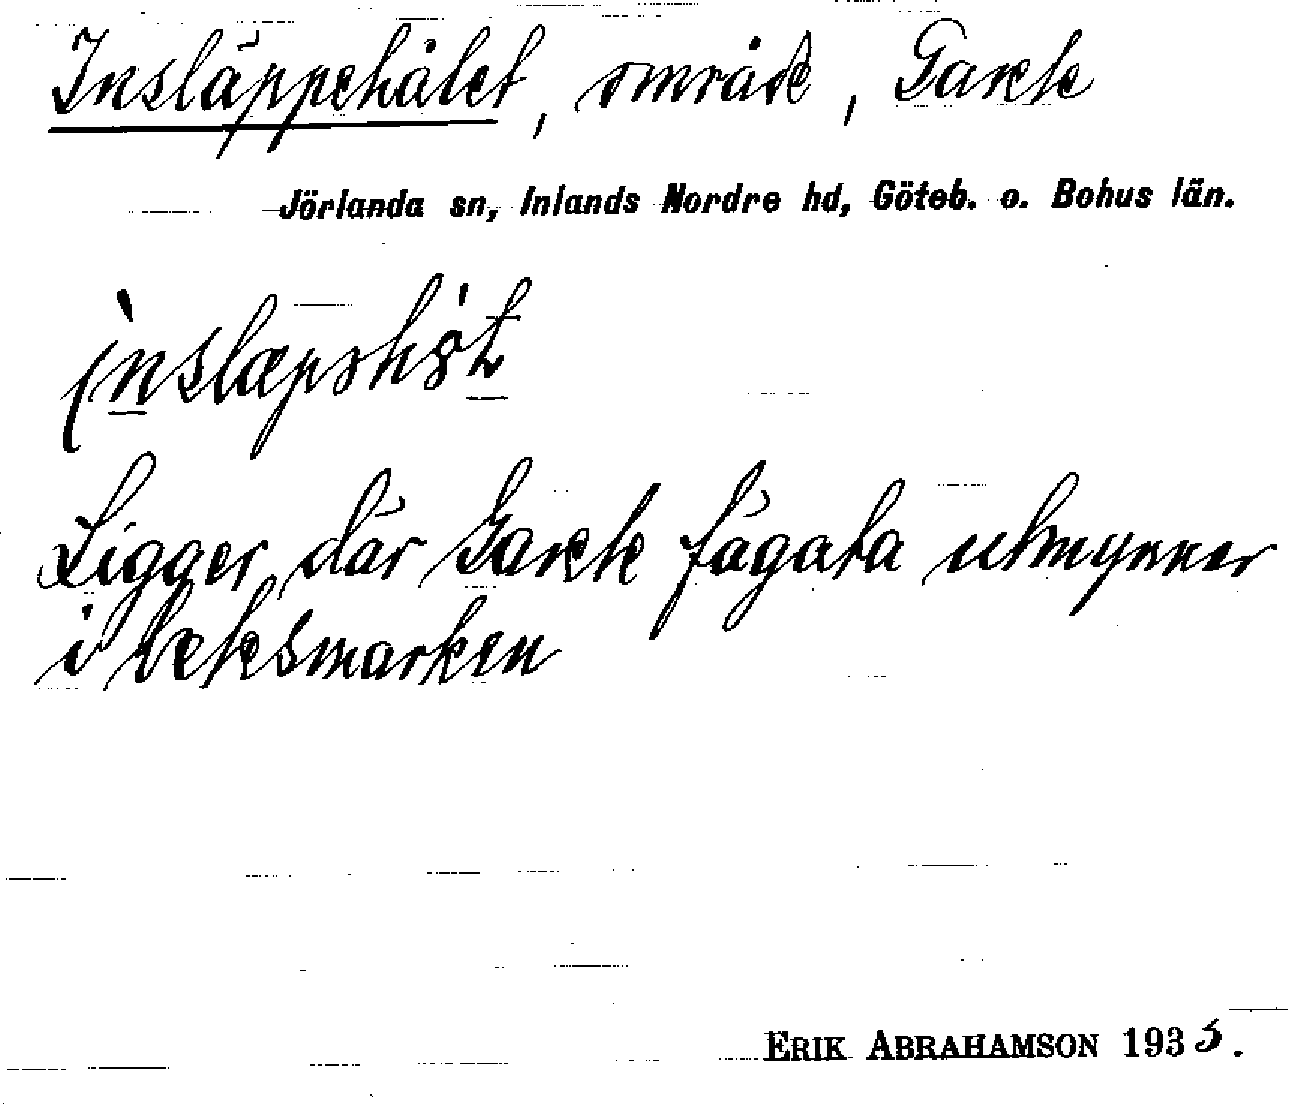 Insläppehålet, område, Garete
Jörlanda sn, Inlands Nordre hd, Göteb. o. Bohus län.
Ligger där Garete fägata utmynner
i betesmarken
ERIK ABRAHAMSON 1935.